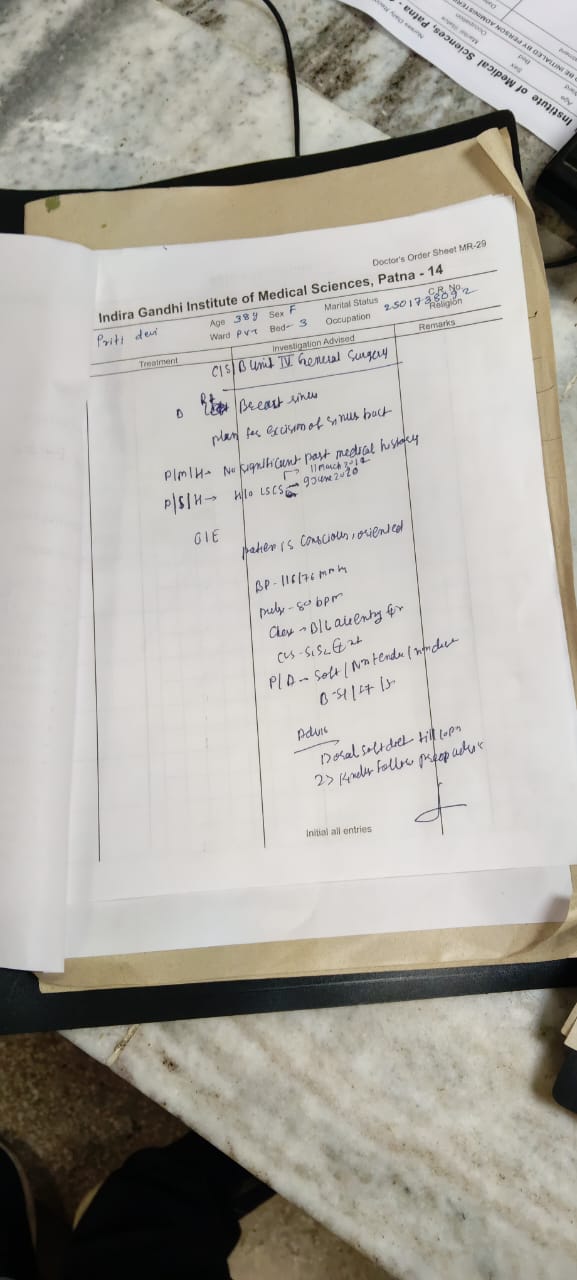 Institute of Medical Sciences, Patna -
BE INITIALED BY PERSON ADMINISTER
Age
Sex
Bed
Marital Status
Occupation
Doctor's Order Sheet MR-29
Indira Gandhi Institute of Medical Sciences, Patna - 14
Priti devi Age 38y Sex F Marital Status C.R. No. 2501738092
Ward Pvt Bed- 3 Occupation Religion
Treatment Investigation Advised Remarks
C/S/B Unit IV General Surgery
D Rt Breast sinus
plan for excision of sinus
P/M/H→ No significant past medical history
11 March
P/S/H→ H/o LSCS 9 June 2020
G/E
patien is conscious, oriented
BP - 116/76 mm
pulse - 80 bpm
Chest → B/L air entry
CVS - S1S2
P/A → Soft / Non tender /
Advis
soft diet till
2> Kindly Follow preop advise
Initial all entries